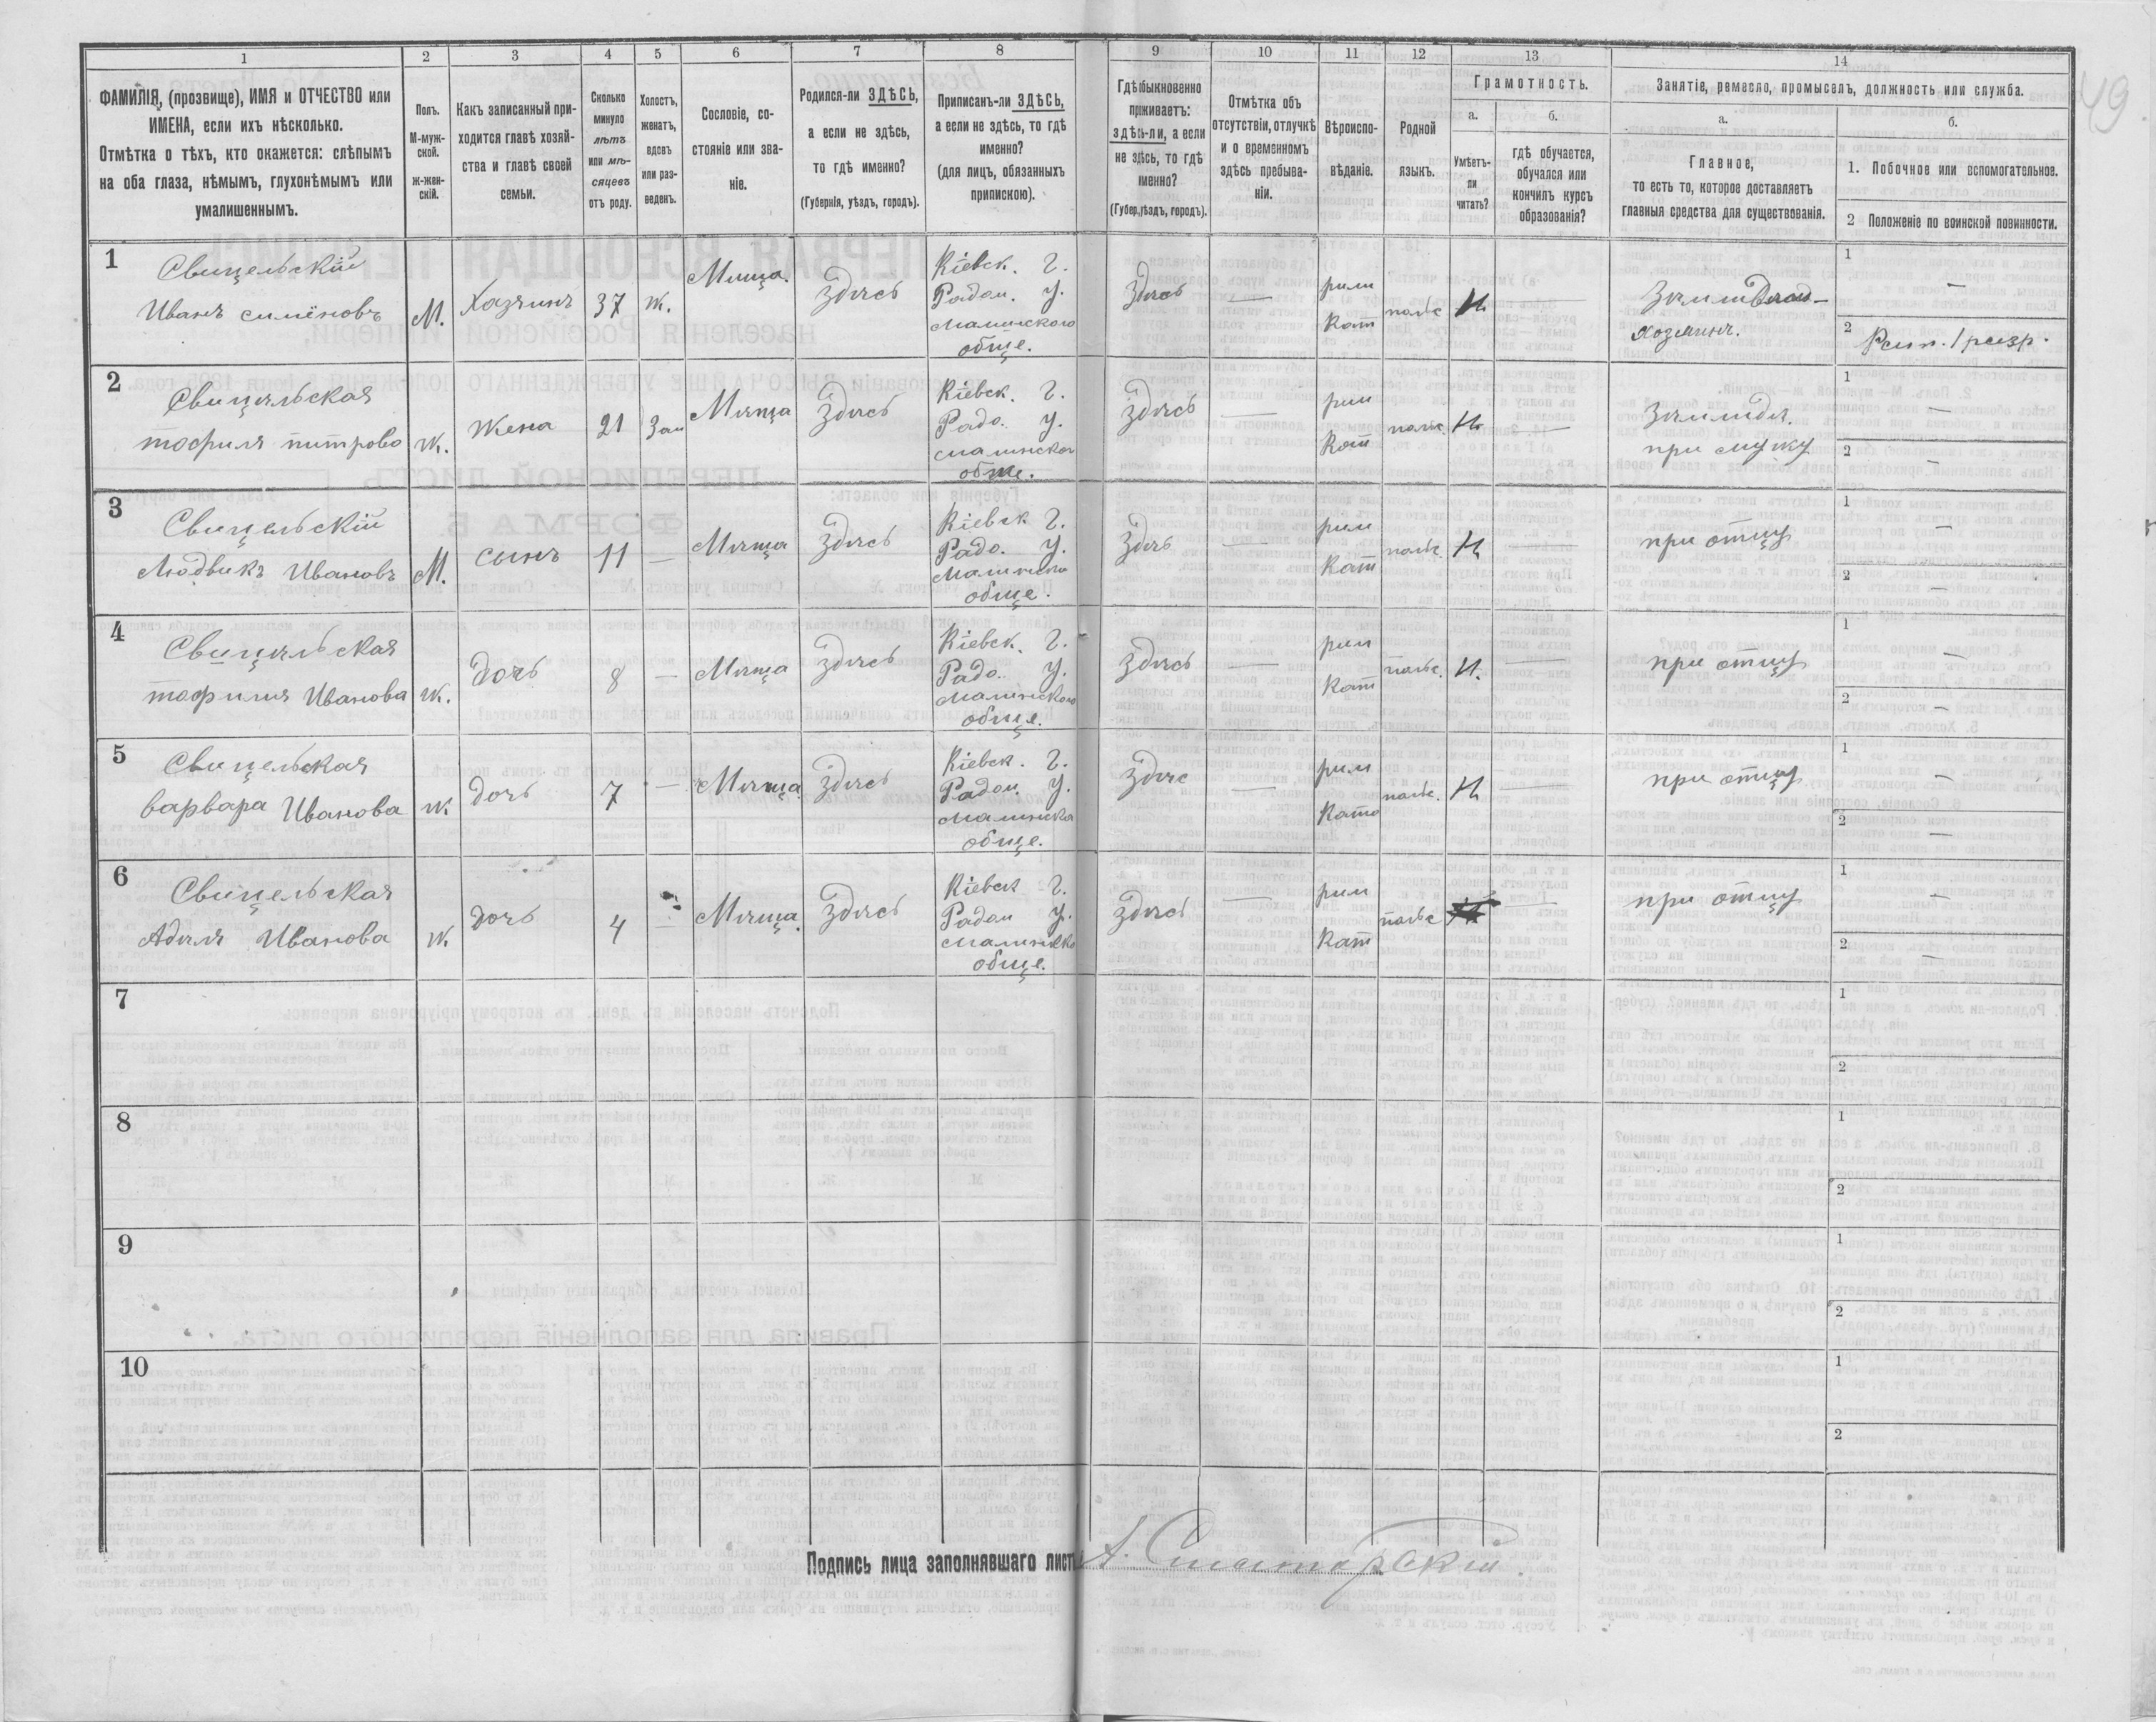 49
1 2 3 4 5 6 7 8 9 10 11 12 13 14
ФАМИЛІЯ, (прозвище), ИМЯ и ОТЧЕСТВО или
ИМЕНА, если ихъ нѣсколько.
Отмѣтка о тѣхъ, кто окажется: слѣпымъ
на оба глаза, нѣмымъ, глухонѣмымъ или
умалишеннымъ.
Полъ.
М-муж-
ской.
ж-жен-
скій.
Какъ записанный при-
ходится главѣ хозяй-
ства и главѣ своей
семьи.
Сколько
минуло
лѣтъ
или мѣ-
сяцевъ
отъ роду.
Холостъ,
женатъ,
вдовъ
или раз-
веденъ.
Сословіе, со-
стояніе или зва-
ніе.
Родился-ли ЗДѢСЬ,
а если не здѣсь,
то гдѣ именно?
(Губернія, уѣздъ, городъ).
Приписанъ-ли ЗДѢСЬ,
а если не здѣсь, то гдѣ
именно?
(для лицъ, обязанныхъ
припискою).
Гдѣ обыкновенно
проживаетъ:
здѣсь-ли, а если
не здѣсь, то гдѣ
именно?
(Губер., уѣздъ, городъ).
Отмѣтка объ
отсутствіи, отлучкѣ
и о временномъ
здѣсь пребыва-
ніи.
Вѣроиспо-
вѣданіе.
Родной
языкъ.
Грамотность.
а.
Умѣетъ-
ли
читать?
б.
гдѣ обучается,
обучался или
кончилъ курсъ
образованія?
Занятіе, ремесло, промыселъ, должность или служба.
а.
Главное,
то есть то, которое доставляетъ
главныя средства для существованія.
б.
1. Побочное или вспомогательное.
2 Положеніе по воинской повинности.
1
Свицельскій
Иванъ Симёновъ
М.
Хазяинъ
37
Ж.
Мѣща.
Здѣсь
Кіевск. Г.
Радом. У.
Малинского
обще.
Здѣсь
—
рим
Кат
польс
Н
Землевлад—
хозяинъ.
1 —
2
1 разр.
2
Свицельская
тофиля питрово
Ж.
Жена
21
Зам
Мѣща
Здѣсь
Кіевск. Г.
Радо. У.
Малинског
обще.
Здѣсь
—
рим
Кат
польс.
Н.
—
при мужу
1 —
2 —
3
Свицельскій
Людвикъ Ивановъ
М.
сынъ
11
—
Мѣща
Здѣсь
Кіевск Г.
Радо. У.
Малинско
обще.
Здѣсь
—
рим
Кат
польс
Н
—
при отцу
1 —
2 —
4
Свицельская
тофилия Иванова
Ж.
Дочь
8
—
Мѣща
Здѣсь
Кіевск. Г.
Радо. У.
Малинского
обще.
Здѣсь
—
рим
Кат
польс.
Н.
—
при отцу
1 —
2 —
5
Свицельская
варвара Иванова
Ж
Дочь
7
—
Мѣща
Здѣсь
Кіевск. Г.
Радом. У.
Малинско
обще.
Здѣс
—
рим
Като
польс.
Н
—
при отцу
1 —
2 —
6
Свицельская
Адѣля Иванова
Ж.
Дочь
4
—
Мѣща.
Здѣсь
Кіевск Г.
Радом У.
Малинско
обще.
Здѣсь
—
рим
Кат
польс
—
при отцу
1 —
2 —
7
1
2
8
1
2
9
1
2
10
1
2
Подпись лица заполнявшаго листъ